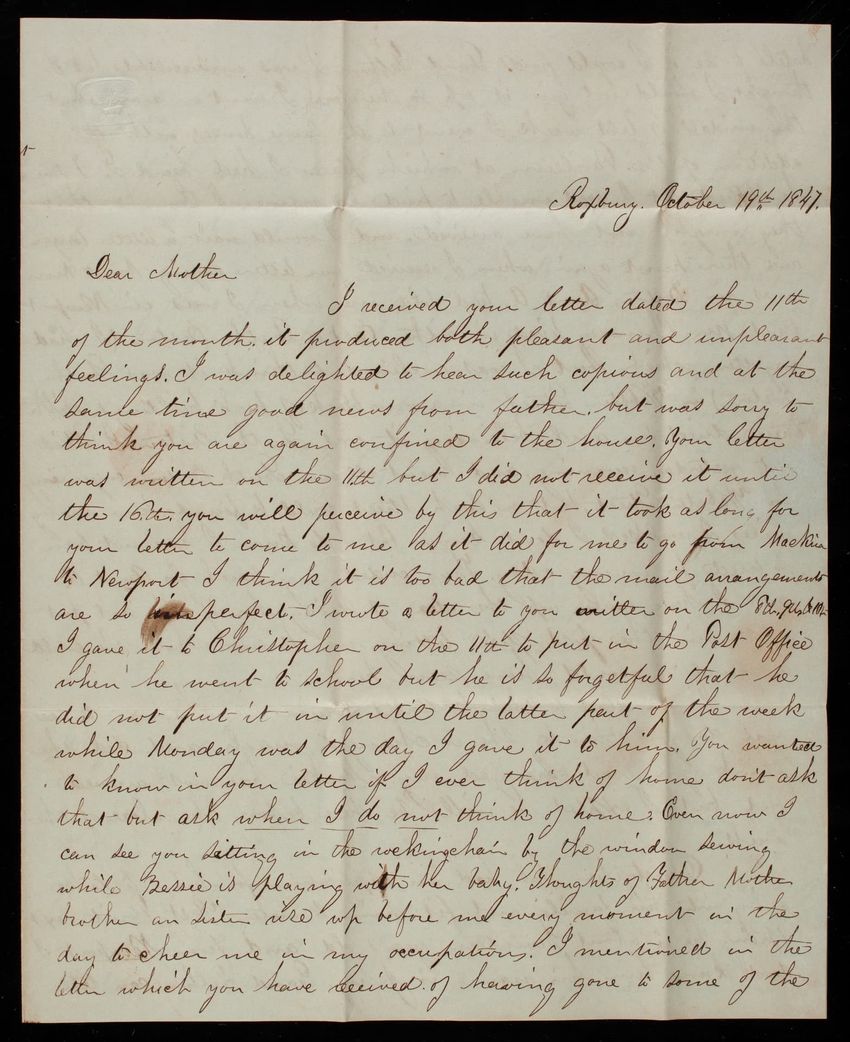 Roxbury. October 19th 1847.
Dear Mother
I received your letter dated the 11th
of the month. it produced both pleasant and unpleasant
feelings. I was delighted to hear such copious and at the
same time good news from father. but was sorry to
think you are again confined to the house. Your letter
was written on the 11th but I did not receive it until
the 16th. you will perceive by this that it took as long for
your letter to come to me as it did for me to go from
to Newport I think it is too bad that the mail arrangements
are so imperfect. I wrote a letter to you written on the 8th, 9th, & 10th
I gave it to Christopher on the 11th to put in the Post Office
when he went to school but he is so forgetful that he
did not put it in until the latter part of the week
while Monday was the day I gave it to him. You wanted
to know in your letter if I ever think of home don't ask
that but ask when I do not think of home. Even now I
can see you sitting in the rockingchair by the window sewing
while Bessie is playing with her baby. Thoughts of Father Mother
brother an sister rise up before me every moment in the
day to cheer me in my occupations. I mentioned in the
letter which you have received. of having gone to some of the